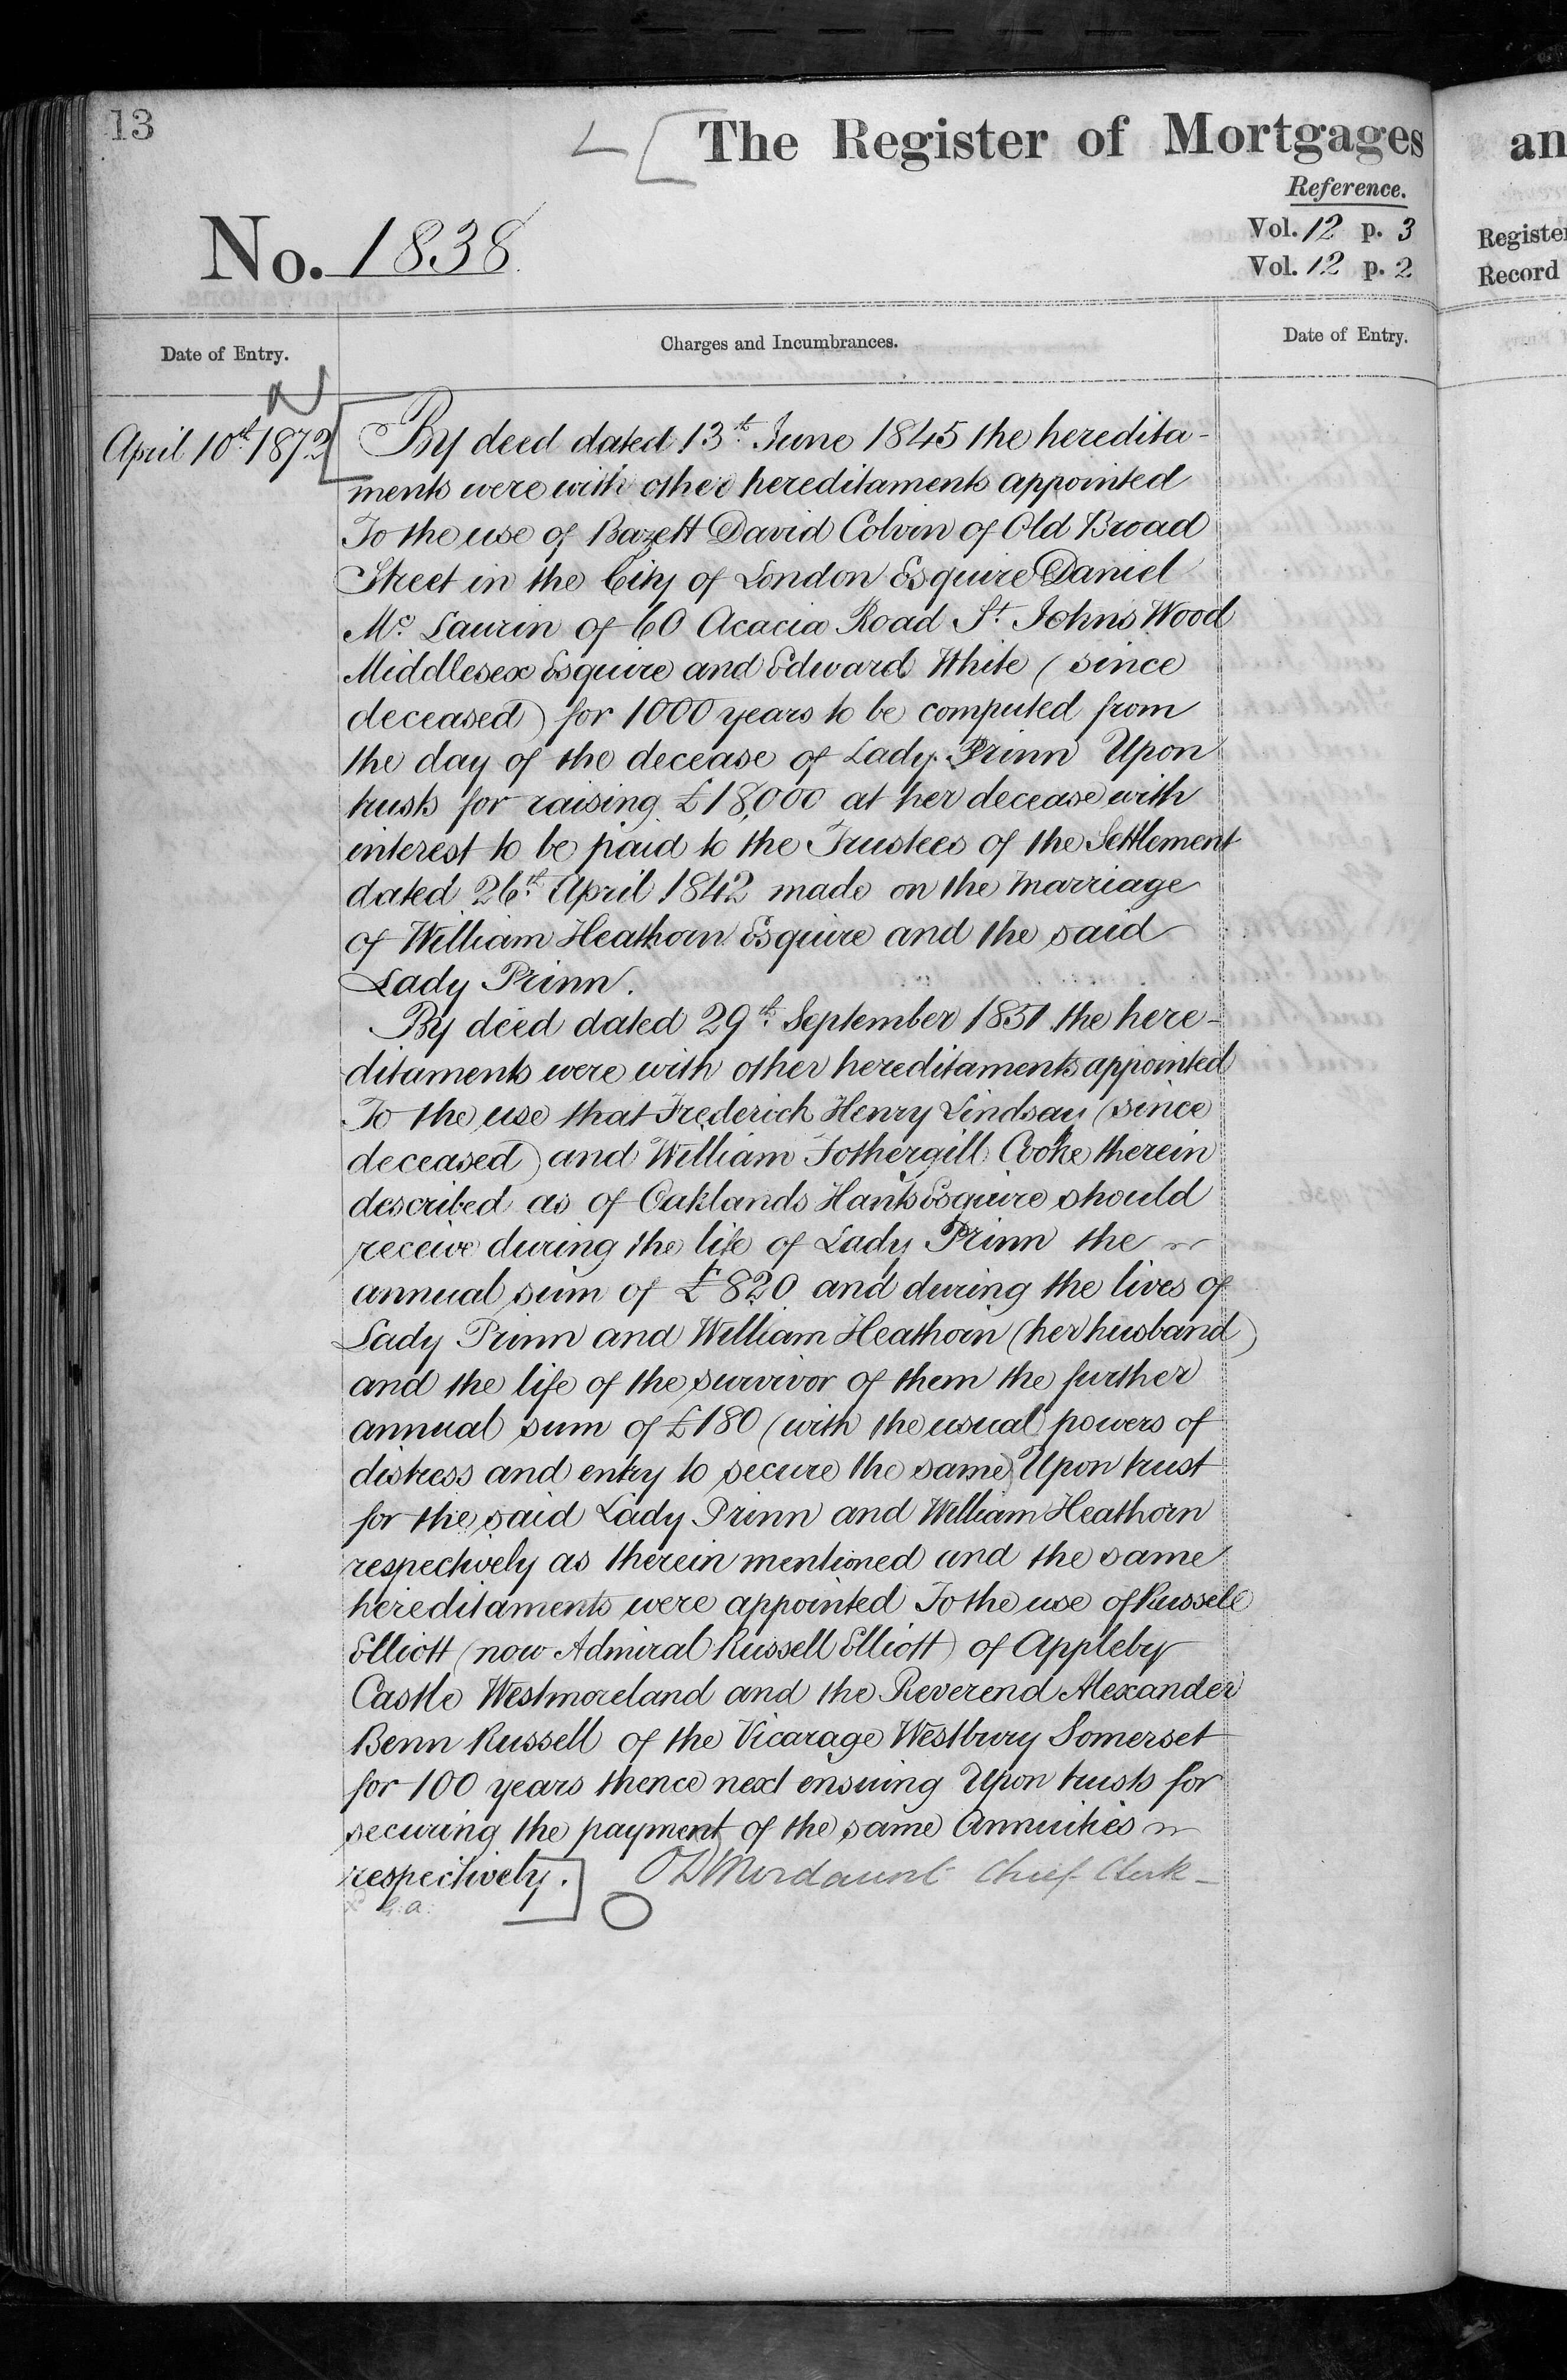 13
The Register of Mortgages
an
Reference.
No. 1838.
Vol. 12 p. 3
Vol. 12 p. 2
Register
Record
Date of Entry.
Charges and Incumbrances.
Date of Entry.
April 10th 1872
By deed dated 13th June 1845 the heredita-
ments were with other hereditaments appointed
To the use of Bazett David Colvin of Old Broad
Street in the City of London Esquire Daniel
Mc. Laurin of 60 Acacia Road St. Johns Wood
Middlesex Esquire and Edward White (since
deceased) for 1000 years to be computed from
the day of the decease of Lady Prinn Upon
trusts for raising £18,000 at her decease with
interest to be paid to the Trustees of the Settlement
dated 26th April 1842 made on the marriage
of William Heathorn Esquire and the said
Lady Prinn.
By deed dated 29th September 1851 the here-
ditaments were with other hereditaments appointed
To the use that Frederick Henry Lindsay (since
deceased) and William Fothergill Cooke therein
described as of Oaklands Hants Esquire should
receive during the life of Lady Prinn the
annual sum of £820 and during the lives of
Lady Prinn and William Heathorn (her husband)
and the life of the survivor of them the further
annual sum of £180 (with the usual powers of
distress and entry to secure the same) Upon trust
for the said Lady Prinn and William Heathorn
respectively as therein mentioned and the same
hereditaments were appointed To the use of Russell
Elliott (now Admiral Russell Elliott) of Appleby
Castle Westmoreland and the Reverend Alexander
Benn Russell of the Vicarage Westbury Somerset
for 100 years thence next ensuing Upon trusts for
securing the payment of the same Annuities
respectively. Mordaunt Chief Clerk
G.a.